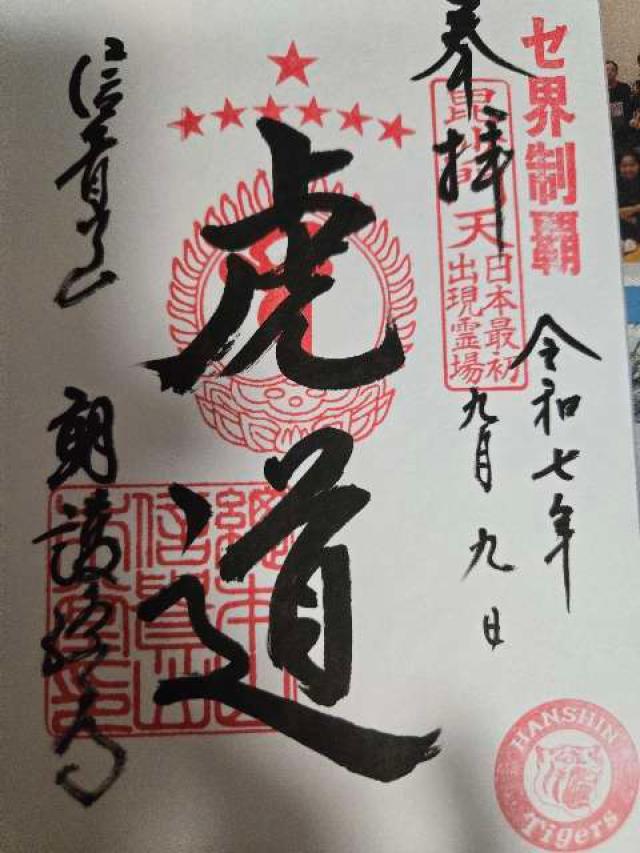 セ界制覇
奉拝
毘沙門天
日本最初
出現霊場
令和七年
九月九日
虎道
信貴山
朝護孫子寺
總本山
信貴山
HANSHIN
Tigers